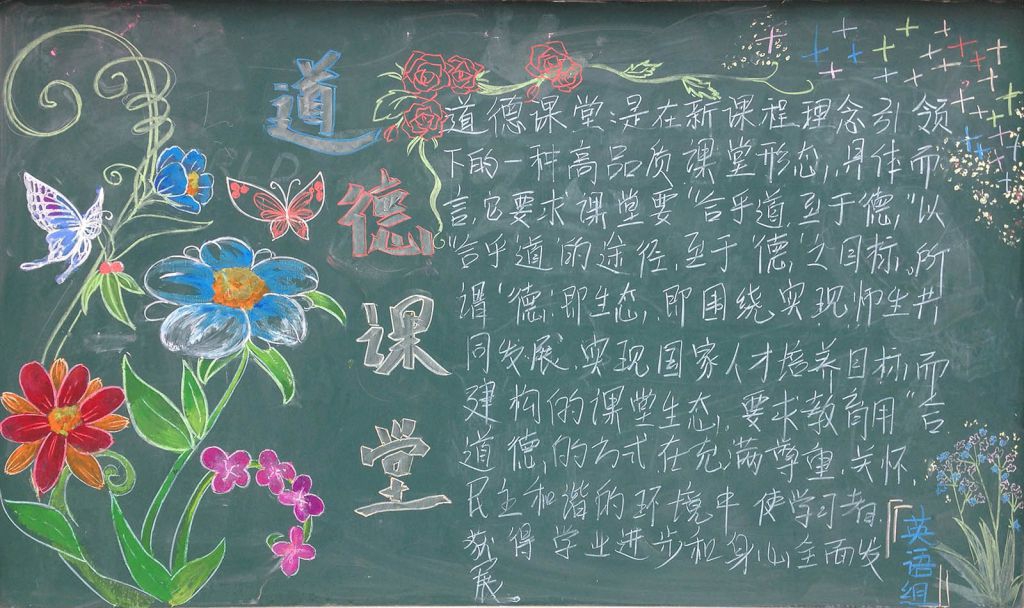 道德课堂
道德课堂:是在新课程理念引领
下的一种高品质课堂形态,具体而
言,它要求课堂要“合乎道,至于德,”以
“合乎道”的途径,至于“德”之目标。所
谓“德”即生态,即围绕实现师生共
同发展,实现国家人才培养目标,而
建构的课堂生态,要求教育用“合
道德”的方式在充满尊重、关怀、
民主和谐的环境中使学习者
获得学业进步和身心全面发
展。
英语组